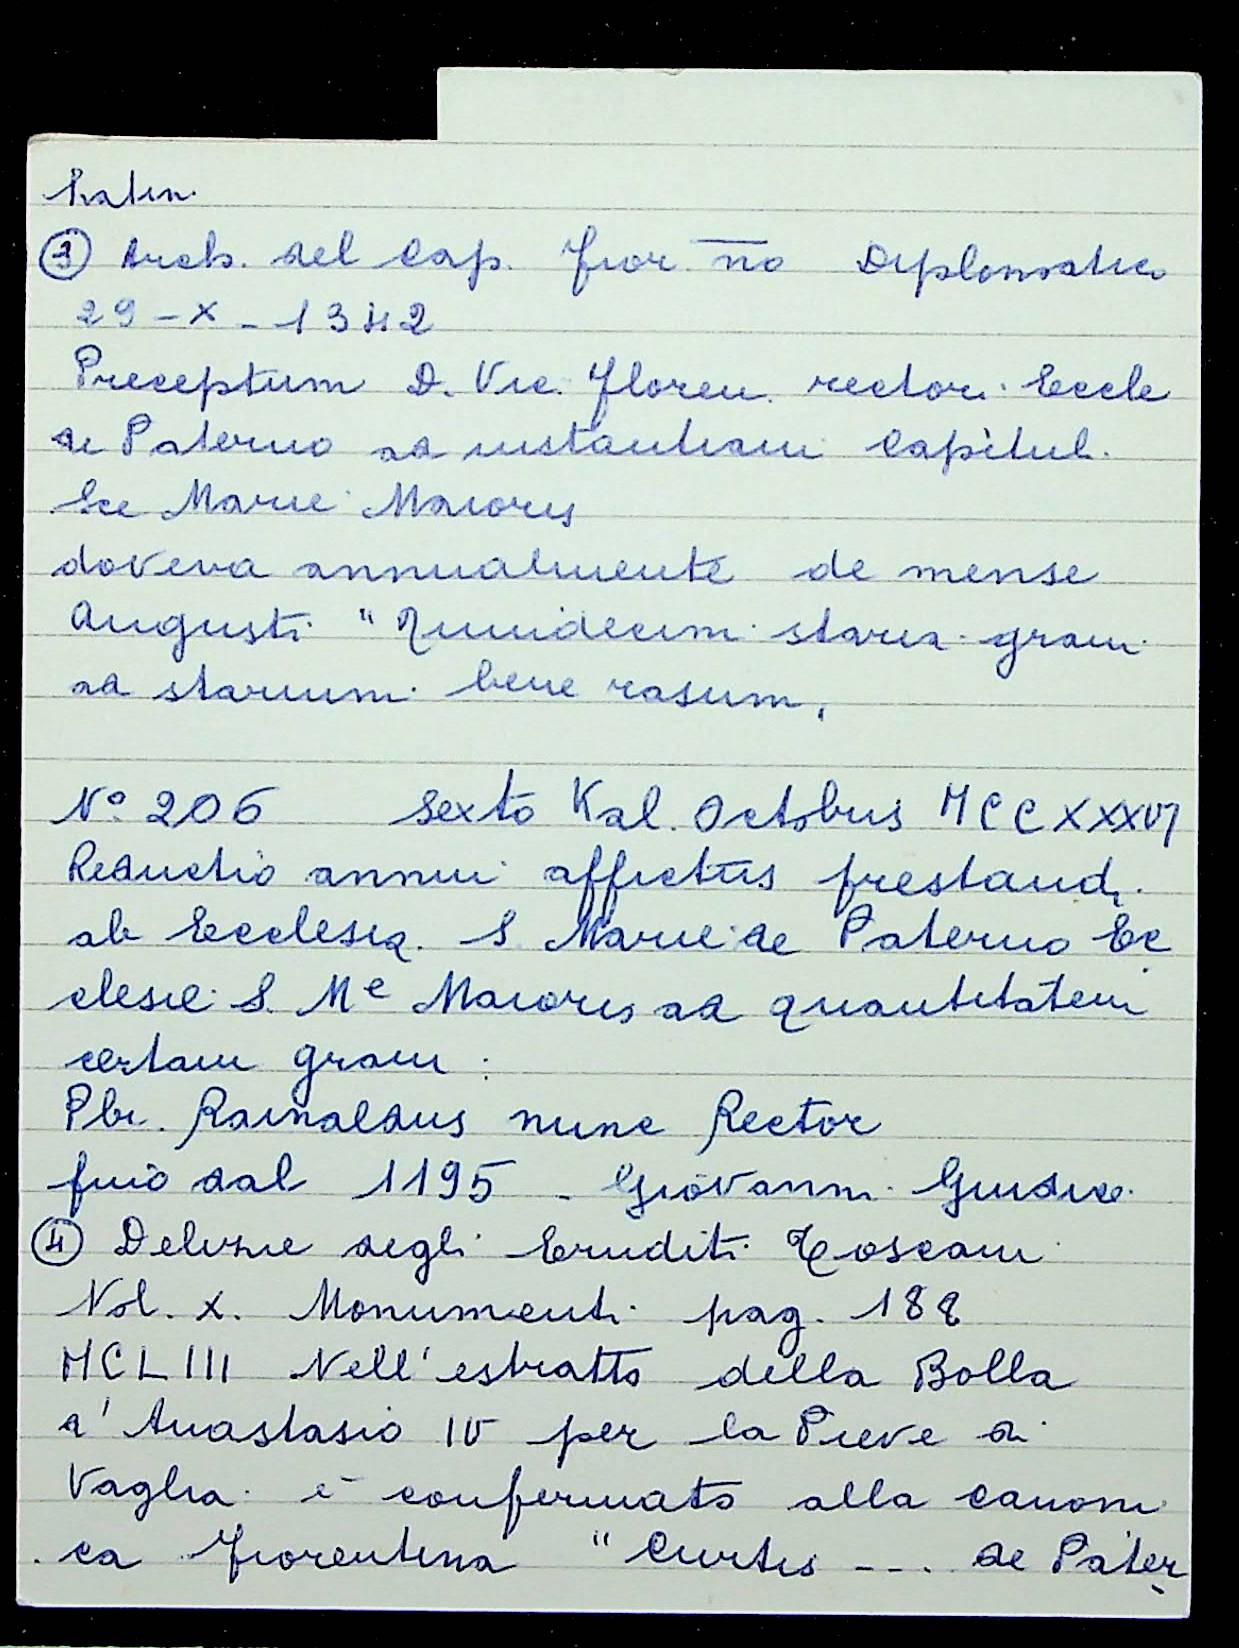 ③ Arch. del Cap. Fior.no Diplomatico
29-X-1342
Preceptum D. Vic. Floren. rectori Eccle
de Paterno ad instantiam Capitul.
Sce Marie Maioris
doveva annualmente de mense
Augusti "Quindecim staria grani
ad starium bene rasum,
N° 206 Sexto Kal. Octobris MCCXXXVI
Reductio annui affictus prestandi
ab Ecclesia S. Marie de Paterno Ec
clesie S. Me Maioris ad quantitatem
certam grani:
Pbr. Rainaldus nunc Rector
fino dal 1195 - Giovanni Giudice
④ Delizie degli Eruditi Toscani
Vol. X. Monumenti pag. 188
MCLIII Nell'estratto della Bolla
d'Anastasio IV per la Pieve di
Vaglia è confermato alla canoni
ca Fiorentina "Curtis --.. de Pater